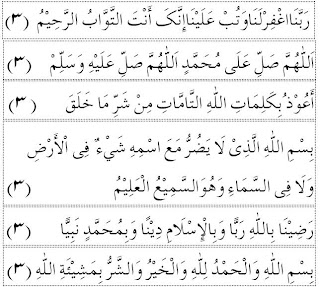 رَبَّنَا اغْفِرْ لَنَا وَتُبْ عَلَيْنَا إِنَّكَ أَنْتَ التَّوَّابُ الرَّحِيْمُ (٣)
اَللّٰهُمَّ صَلِّ عَلَى مُحَمَّدٍ اَللّٰهُمَّ صَلِّ عَلَيْهِ وَسَلِّمْ (٣)
أَعُوْذُ بِكَلِمَاتِ اللّٰهِ التَّامَّاتِ مِنْ شَرِّ مَا خَلَقَ (٣)
بِسْمِ اللّٰهِ الَّذِىْ لَا يَضُرُّ مَعَ اسْمِهِ شَيْءٌ فِى الْأَرْضِ
وَلَا فِى السَّمَاءِ وَهُوَ السَّمِيْعُ الْعَلِيْمُ (٣)
رَضِيْنَا بِاللّٰهِ رَبًّا وَبِالْإِسْلَامِ دِيْنًا وَبِمُحَمَّدٍ نَبِيًّا (٣)
بِسْمِ اللّٰهِ وَالْحَمْدُ لِلّٰهِ وَالْخَيْرُ وَالشَّرُّ بِمَشِيْئَةِ اللّٰهِ (٣)